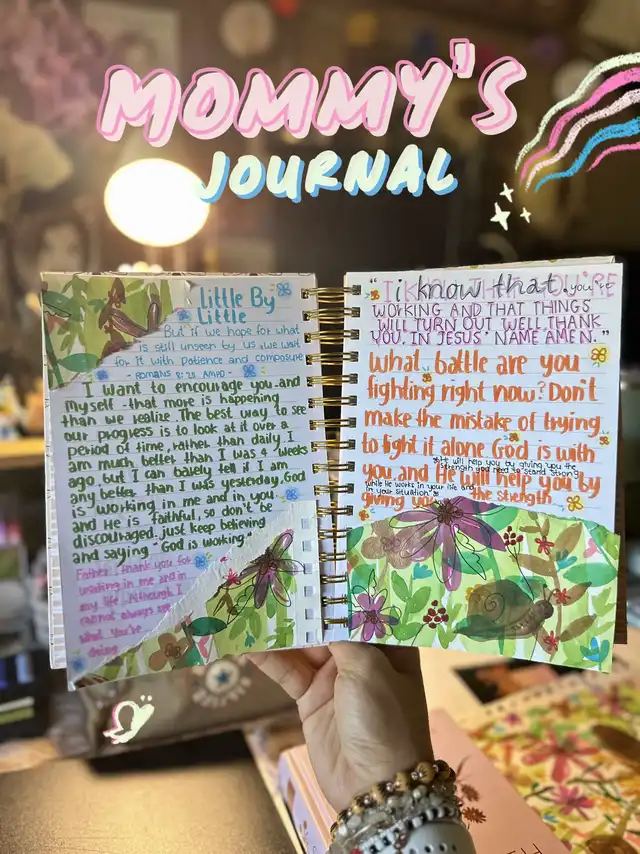 MOMMY'S
JOURNAL
Little By
Little
But if we hope for what
is still unseen by us, we wait
for it with patience and composure
- ROMANS 8:25 AMPC -
I want to encourage you and
myself that more is happening
than we realize. The best way to see
our progress is to look at it over a
period of time, rather than daily. I
am much better than I was 4 weeks
ago, but I can barely tell if I am
any better than I was yesterday. God
is working in me and in you
and He is faithful, so don't be
discouraged. just keep believing
and saying "God is working"
Father, thank you for
working in me and in
my life. Although I
cannot always see
what you're
doing
"I KNOW THAT YOU'RE
i know that you're
WORKING AND THAT THINGS
WILL TURN OUT WELL, THANK
YOU. IN JESUS' NAME AMEN."
What battle are you
fighting right now? Don't
make the mistake of trying
to fight it alone God is with
you, and He will help you by
giving you the strength
He will help you by giving you the
strength you need to stand strong
while He works in your life and
in your situation